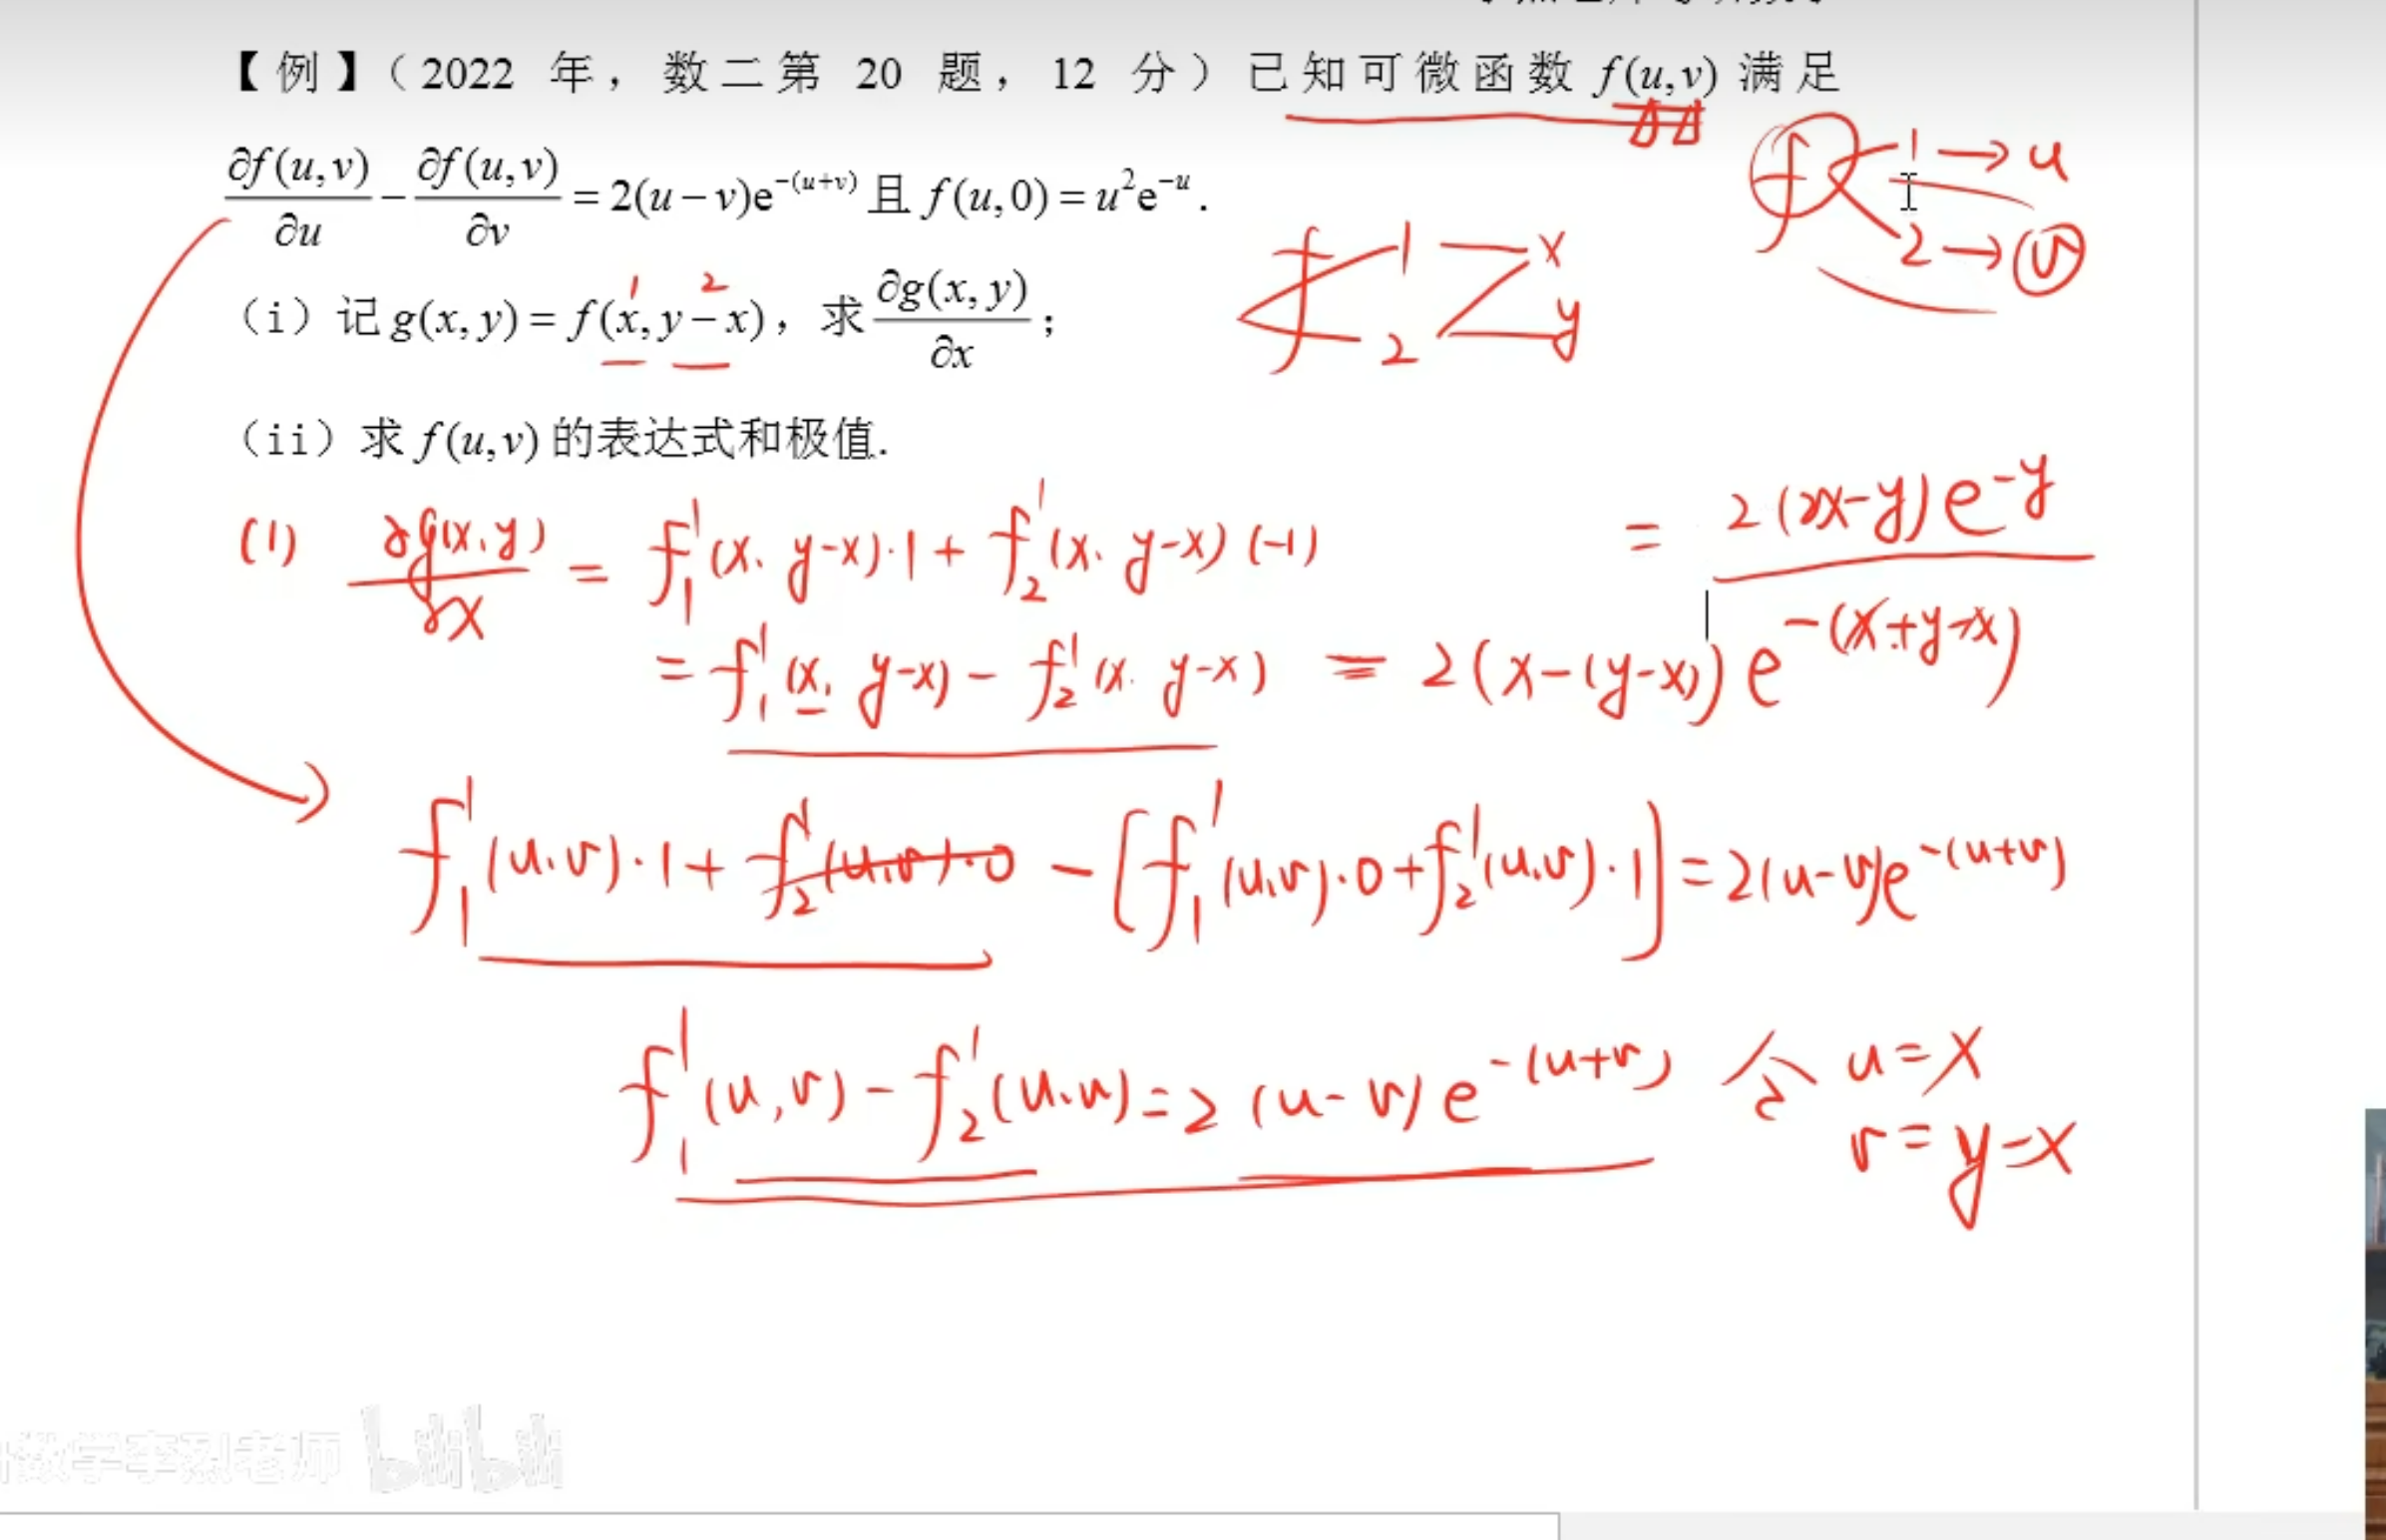 【例】（2022 年，数二第 20 题，12 分）已知可微函数 f(u,v) 满足
∂f(u,v)/∂u − ∂f(u,v)/∂v = 2(u−v)e^{-(u+v)} 且 f(u,0) = u²e^{-u}.
f 1 → u
2 → v
（i）记 g(x,y) = f(x, y−x)，求 ∂g(x,y)/∂x；
1 2
f 1 x
2 y
（ii）求 f(u,v) 的表达式和极值.
(1) ∂g(x,y)/∂x = f₁'(x, y−x)·1 + f₂'(x, y−x)(−1)
= f₁'(x, y−x) − f₂'(x, y−x) = 2(x−(y−x))e^{-(x+y-x)}
= 2(2x−y)e^{-y}
f₁'(u,v)·1 + f₂'(u,v)·0 − [f₁'(u,v)·0 + f₂'(u,v)·1] = 2(u−v)e^{-(u+v)}
f₁'(u,v) − f₂'(u,v) = 2(u−v)e^{-(u+v)} 令 u=x
v=y−x
数学李烈老师 bilibili